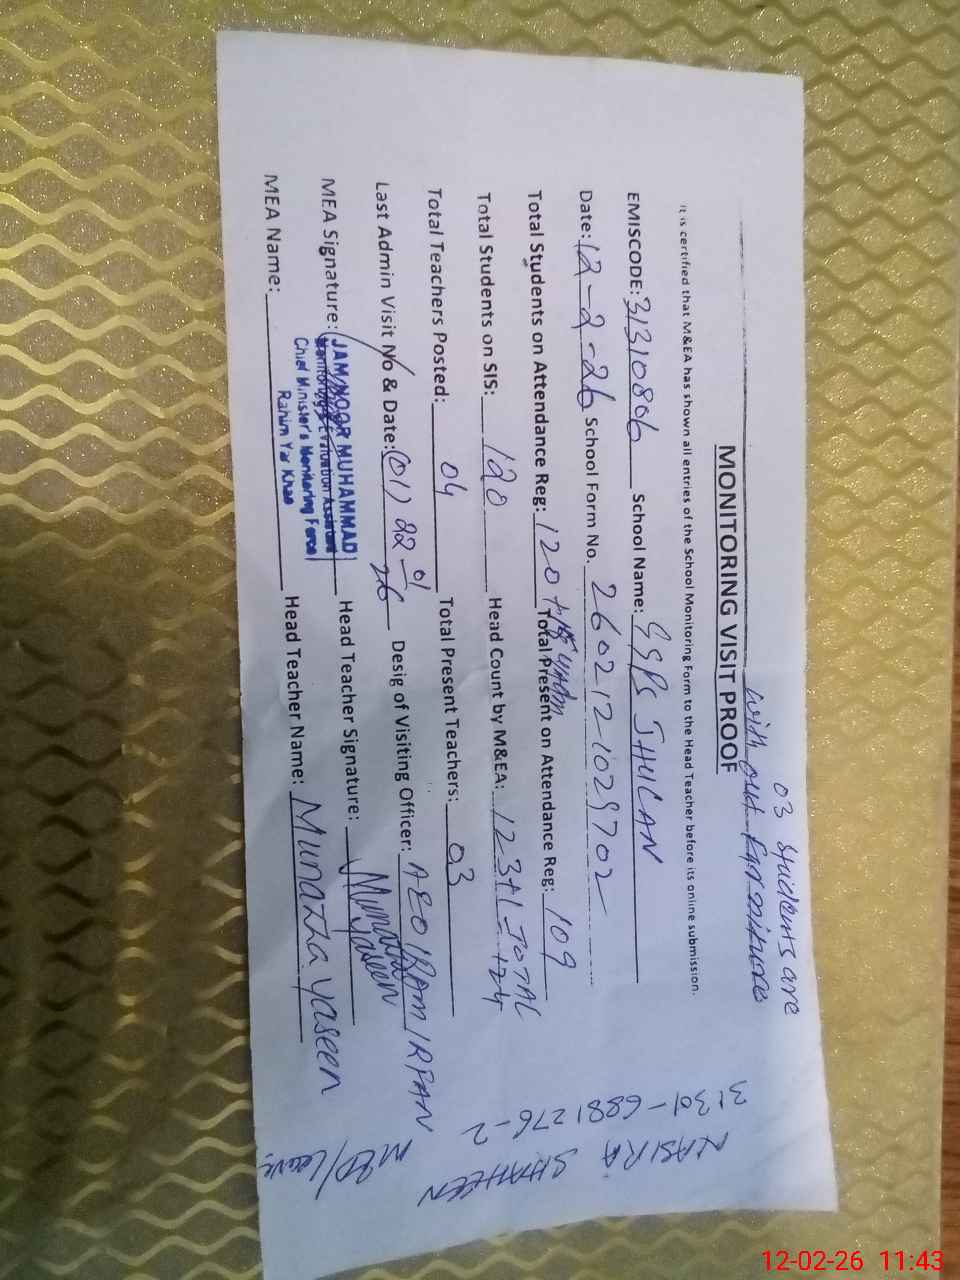 03 students are
with out furniture
MONITORING VISIT PROOF
It is certified that M&EA has shown all entries of the School Monitoring Form to the Head Teacher before its online submission.
EMISCODE: 31310806 School Name: GGPS JHULAN
Date: 12-2-26 School Form No. 260212-1029702
Total Students on Attendance Reg: 120+ Total Present on Attendance Reg: 109
Total Students on SIS: 120 Head Count by M&EA: 123+1 TOTAL 124
Total Teachers Posted: 04 Total Present Teachers: 03
Last Admin Visit No & Date: (01) 22-01-26 Desig of Visiting Officer: AEO IRAM IRFAN
MEA Signature: Head Teacher Signature: Munazha Yaseen
JAM NOOR MUHAMMAD
Monitoring & Evaluation Assistant
Chief Minister's Monitoring Force
Rahim Yar Khan
MEA Name: Head Teacher Name: Munazha Yaseen
31301-6881276-2
NASIRA SHAHEEN
MED/Leave
12-02-26 11:43